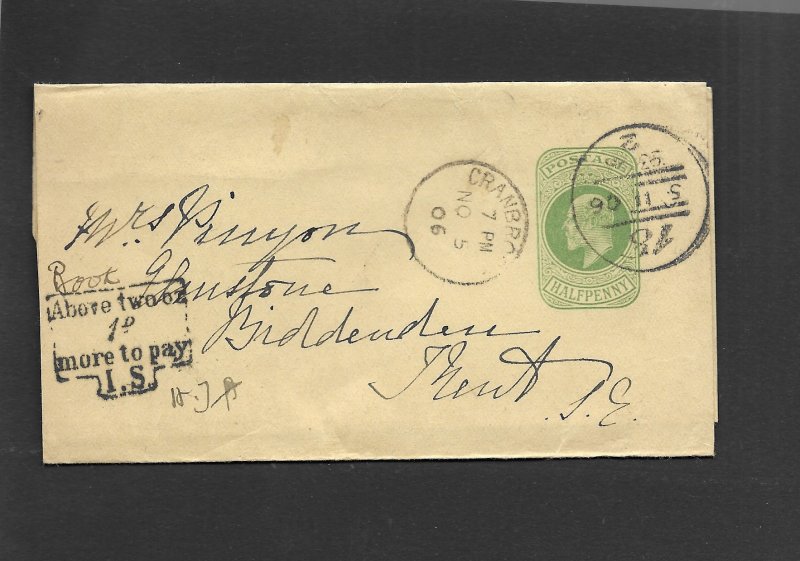 POSTAGE
HALFPENNY
CRANBRO
7 PM
NO 5
06
11 S
06
Mrs Pinyon
Glanstone
Biddenden
Kent
S.E.
Book
Above two oz
1D
more to pay
I.S.